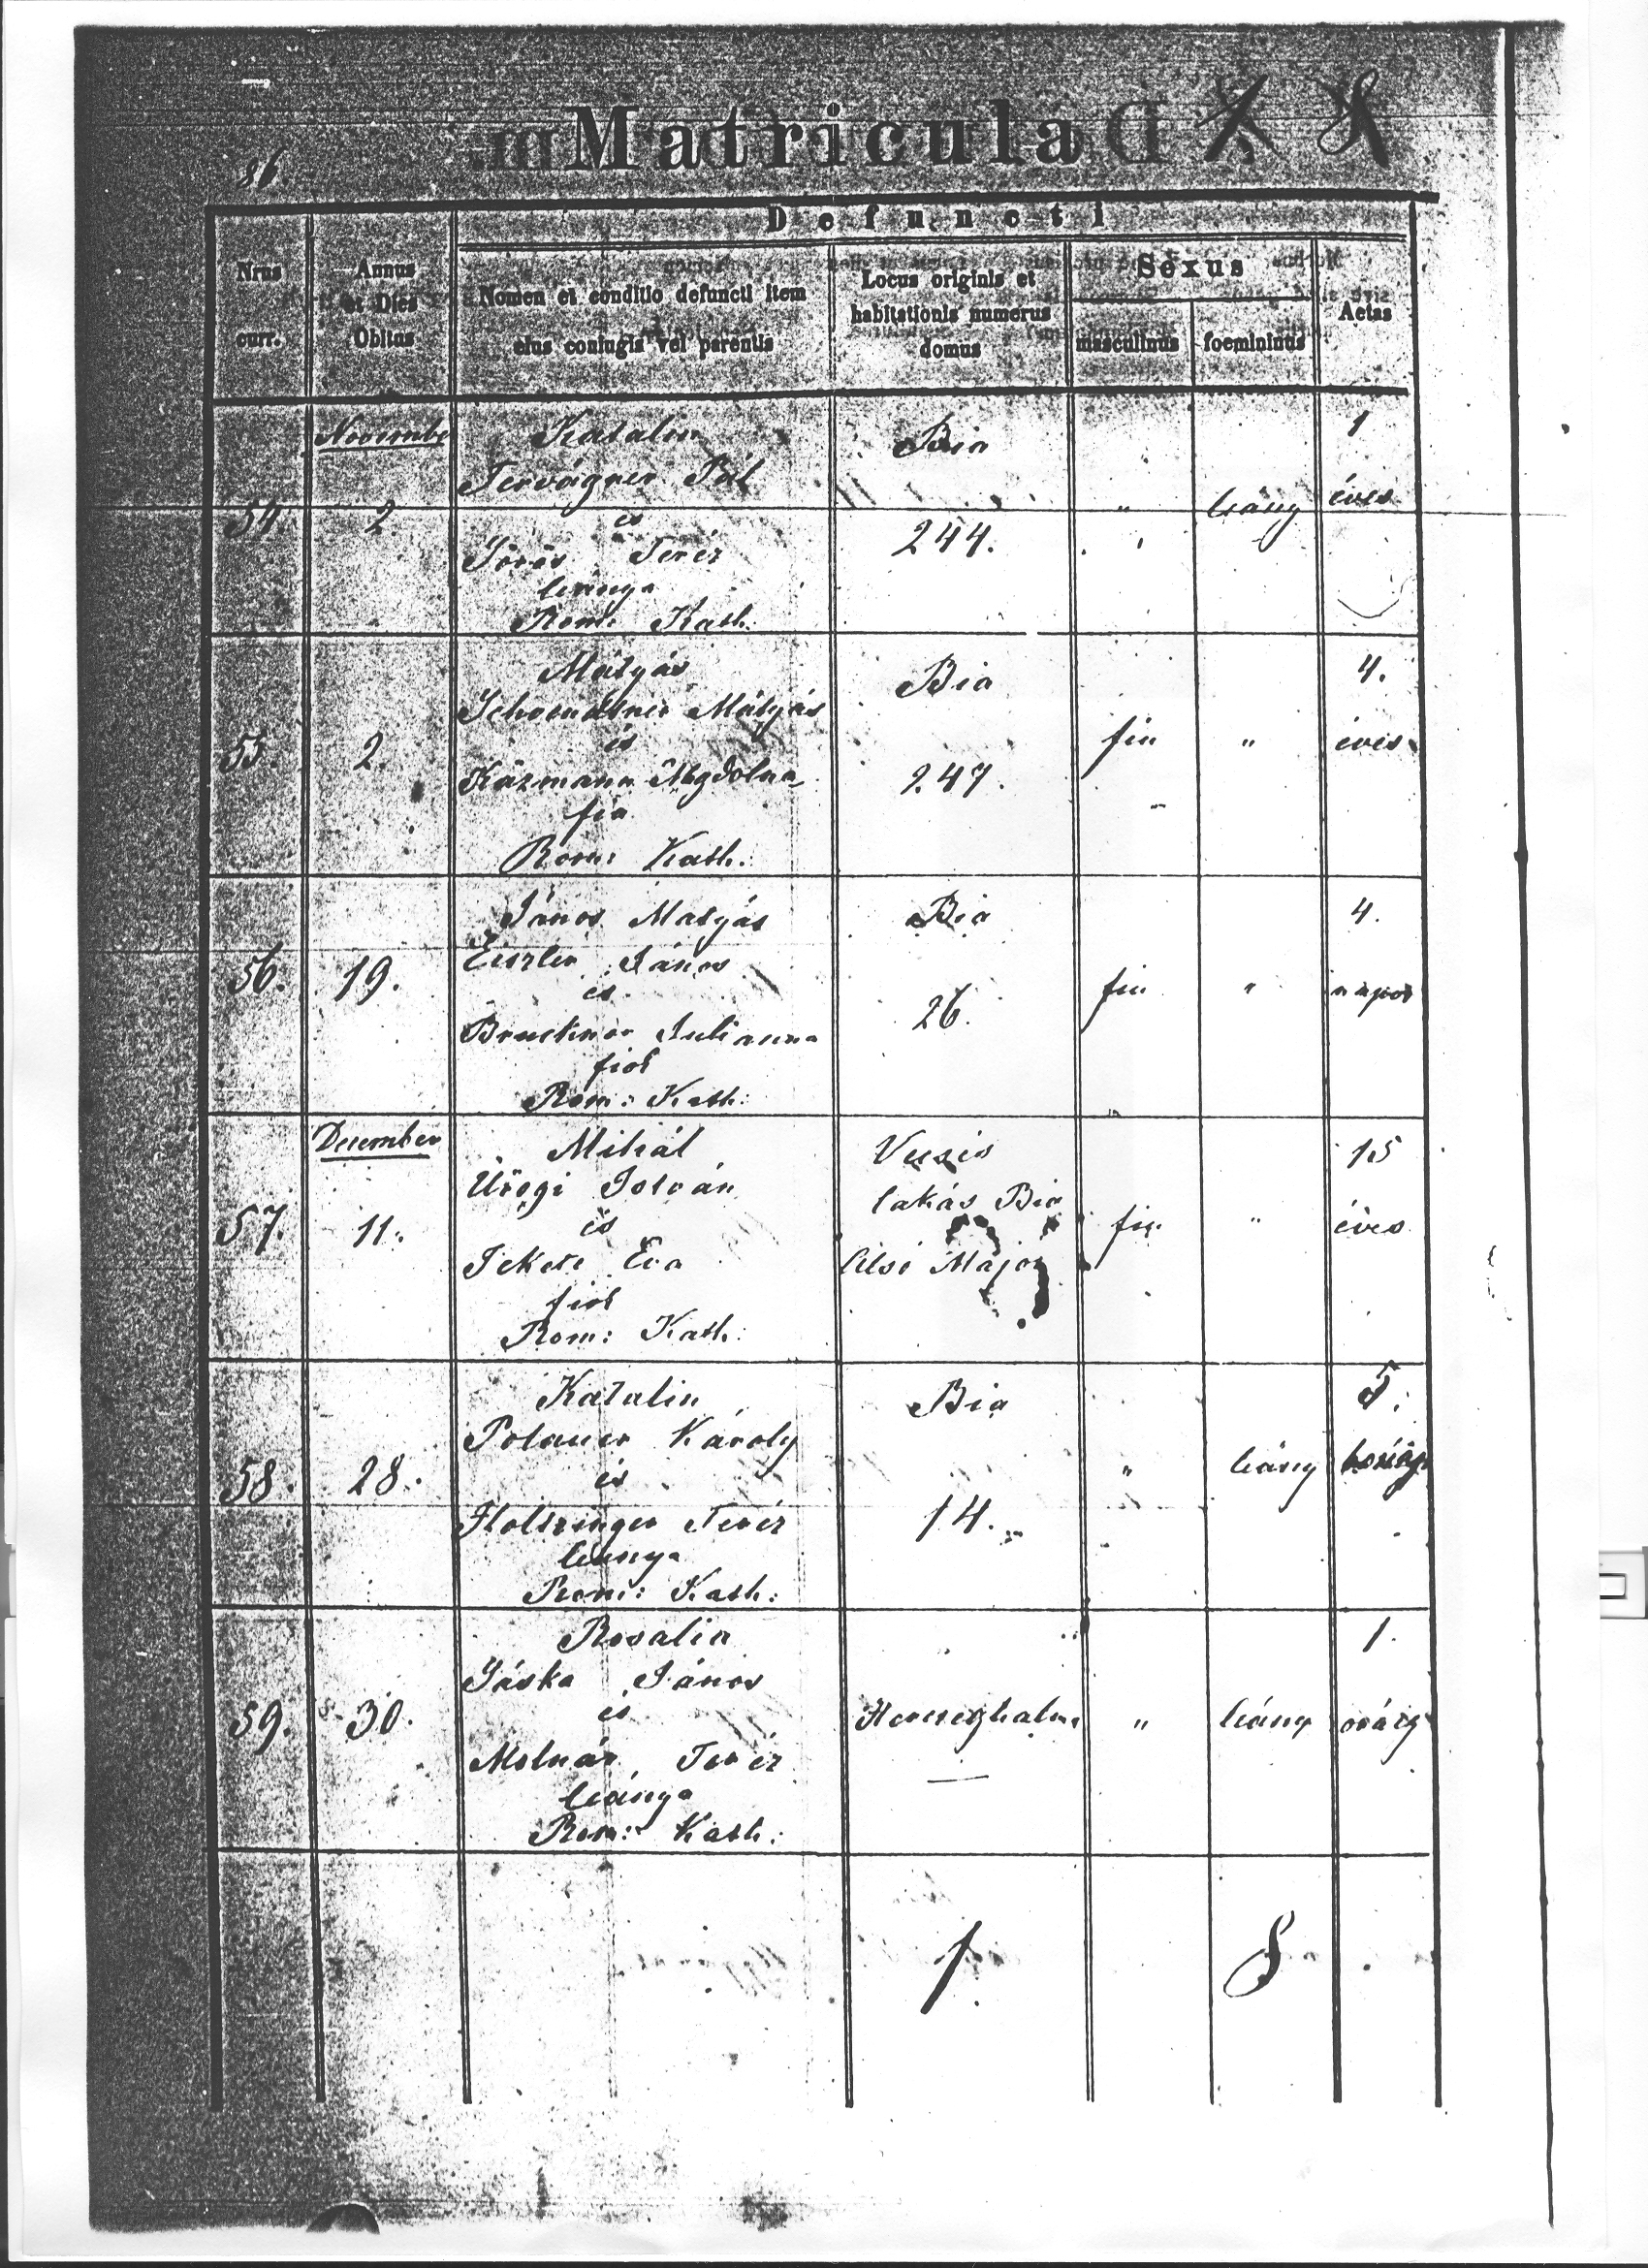 Matricula
86.
Defuncti
Nrus
curr.
Annus
et Dies
Obitus
Nomen et conditio defuncti item
eius coniugis vel parentis
Locus originis et
habitationis numerus
domus
Sexus
masculinus
foemininus
Aetas
Novembe
54
2
Katalin
Tervágner Pál
és
Teréz
leánya
Rom: Kath:
Bia
244.
"
leány
1
éves
55.
2.
Mátyás
Mátyás
és
Käzmann Mgdolna
fia
Rom: Kath.
Bia
247.
fiu
"
4.
éves
56.
19.
János Matyás
Eiszler János
és
Bruckner Julianna
fiok
Rom: Kath:
Bia
26.
fiu
"
4.
napos
December
57.
11.
Mihál
Ürögi István
és
Fekete Eva
fiok
Rom: Kath:
lakás Bia
Alsó Major
fiu
"
15
éves
58.
28.
Katalin
Polauer Károly
és
Holtzinger Teréz
leánya
Rom: Kath:
Bia
14.
"
leány
5.
59.
30.
Rosalia
Jáska János
és
Molnár Teréz
leánya
Rom: Kath:
Herceghalom
"
leány
1.